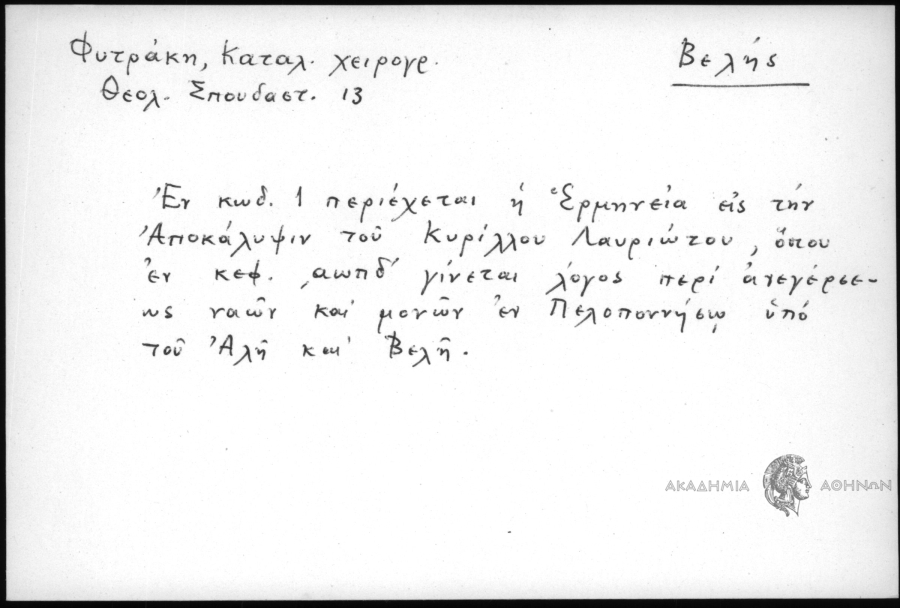 Φυτράκη, Καταλ. χειρογρ.
Βελής
Θεολ. Σπουδαστ. 13
Ἐν κωδ. 1 περιέχεται ἡ Ἑρμηνεία εἰς τήν
Ἀποκάλυψιν τοῦ Κυρίλλου Λαυριώτου, ὅπου
ἐν κεφ. ͵αωπδ΄ γίνεται λόγος περί ἀνεγέρσε-
ως ναῶν καί μονῶν ἐν Πελοποννήσῳ ὑπό
τοῦ Ἀλῆ καί Βελῆ.
ΑΚΑΔΗΜΙΑ ΑΘΗΝΩΝ